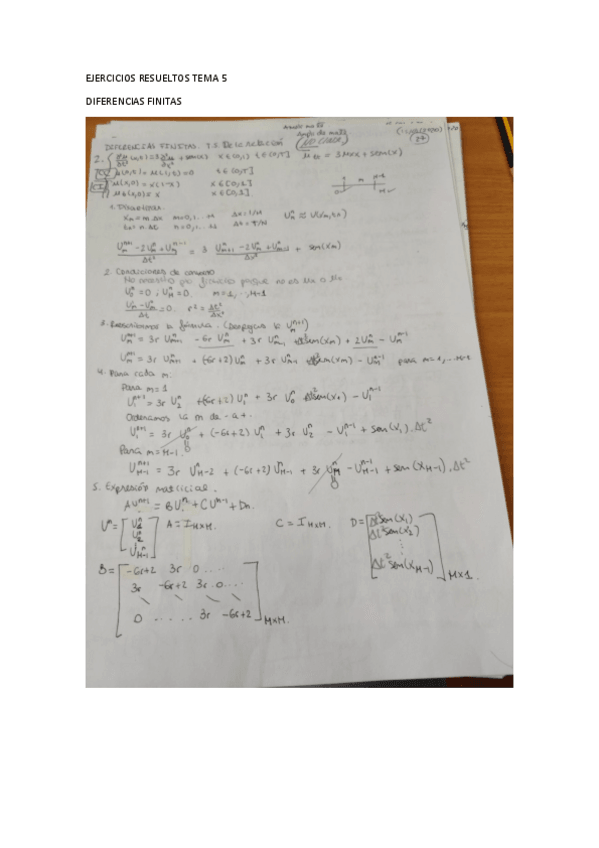 EJERCICIOS RESUELTOS TEMA 5
DIFERENCIAS FINITAS
DIFERENCIAS FINITAS.
2. { ∂²u/∂t² (x,t) = 3 ∂²u/∂x² + sen(x) x ∈ (0,1) t ∈ (0,T] Utt = 3Uxx + sen(x)
u(0,t) = u(1,t) = 0 t ∈ (0,T]
u(x,0) = x(1-x) x ∈ [0,1]
ut(x,0) = x x ∈ [0,1]
1. Discretizar.
xm = m.Δx m=0,1.. M Δx = 1/M Umⁿ ≈ u(xm,tn)
tn = n.Δt n=0,1... N Δt = T/N
(Umⁿ⁺¹ - 2Umⁿ + Umⁿ⁻¹)/Δt² = 3 (Um+1ⁿ - 2Umⁿ + Um-1ⁿ)/Δx² + sen(xm)
2. Condiciones de contorno
No modifico por fórmula porque no es Ux o Ut
U0ⁿ = 0, UMⁿ = 0. m=1,..,M-1
= 0. r² = Δt²/Δx²
3. Reescribimos la fórmula. (Despejas la Umⁿ⁺¹)
Umⁿ⁺¹ = 3r Um+1ⁿ - 6r Umⁿ + 3r Um-1ⁿ + Δt² sen(xm) + 2Umⁿ - Umⁿ⁻¹
Umⁿ⁺¹ = 3r Um+1ⁿ + (-6r+2) Umⁿ + 3r Um-1ⁿ + Δt² sen(xm) - Umⁿ⁻¹ para m=1,...M-1
4. Para cada m:
Para m=1
U1ⁿ⁺¹ = 3r U2ⁿ + (-6r+2) U1ⁿ + 3r U0ⁿ + Δt² sen(x1) - U1ⁿ⁻¹
Ordenamos la m de - a +.
U1ⁿ⁺¹ = 3r U0ⁿ + (-6r+2) U1ⁿ + 3r U2ⁿ - U1ⁿ⁻¹ + sen(x1).Δt²
0
Para m=M-1.
UM-1ⁿ⁺¹ = 3r UM-2ⁿ + (-6r+2) UM-1ⁿ + 3r UMⁿ - UM-1ⁿ⁻¹ + sen(xM-1).Δt²
0
5. Expresión matricial.
AUⁿ⁺¹ = BUⁿ + CUⁿ⁻¹ + Dn.
Uⁿ = [U1ⁿ U2ⁿ ⋮ UM-1ⁿ] A = I MxM. C = I MxM. D = [Δt² sen(x1) Δt² sen(x2) ⋮ Δt² sen(xM-1)] Mx1.
B = [-6r+2 3r 0 ....
3r -6r+2 3r 0 ....
0 ..... 3r -6r+2] MxM.